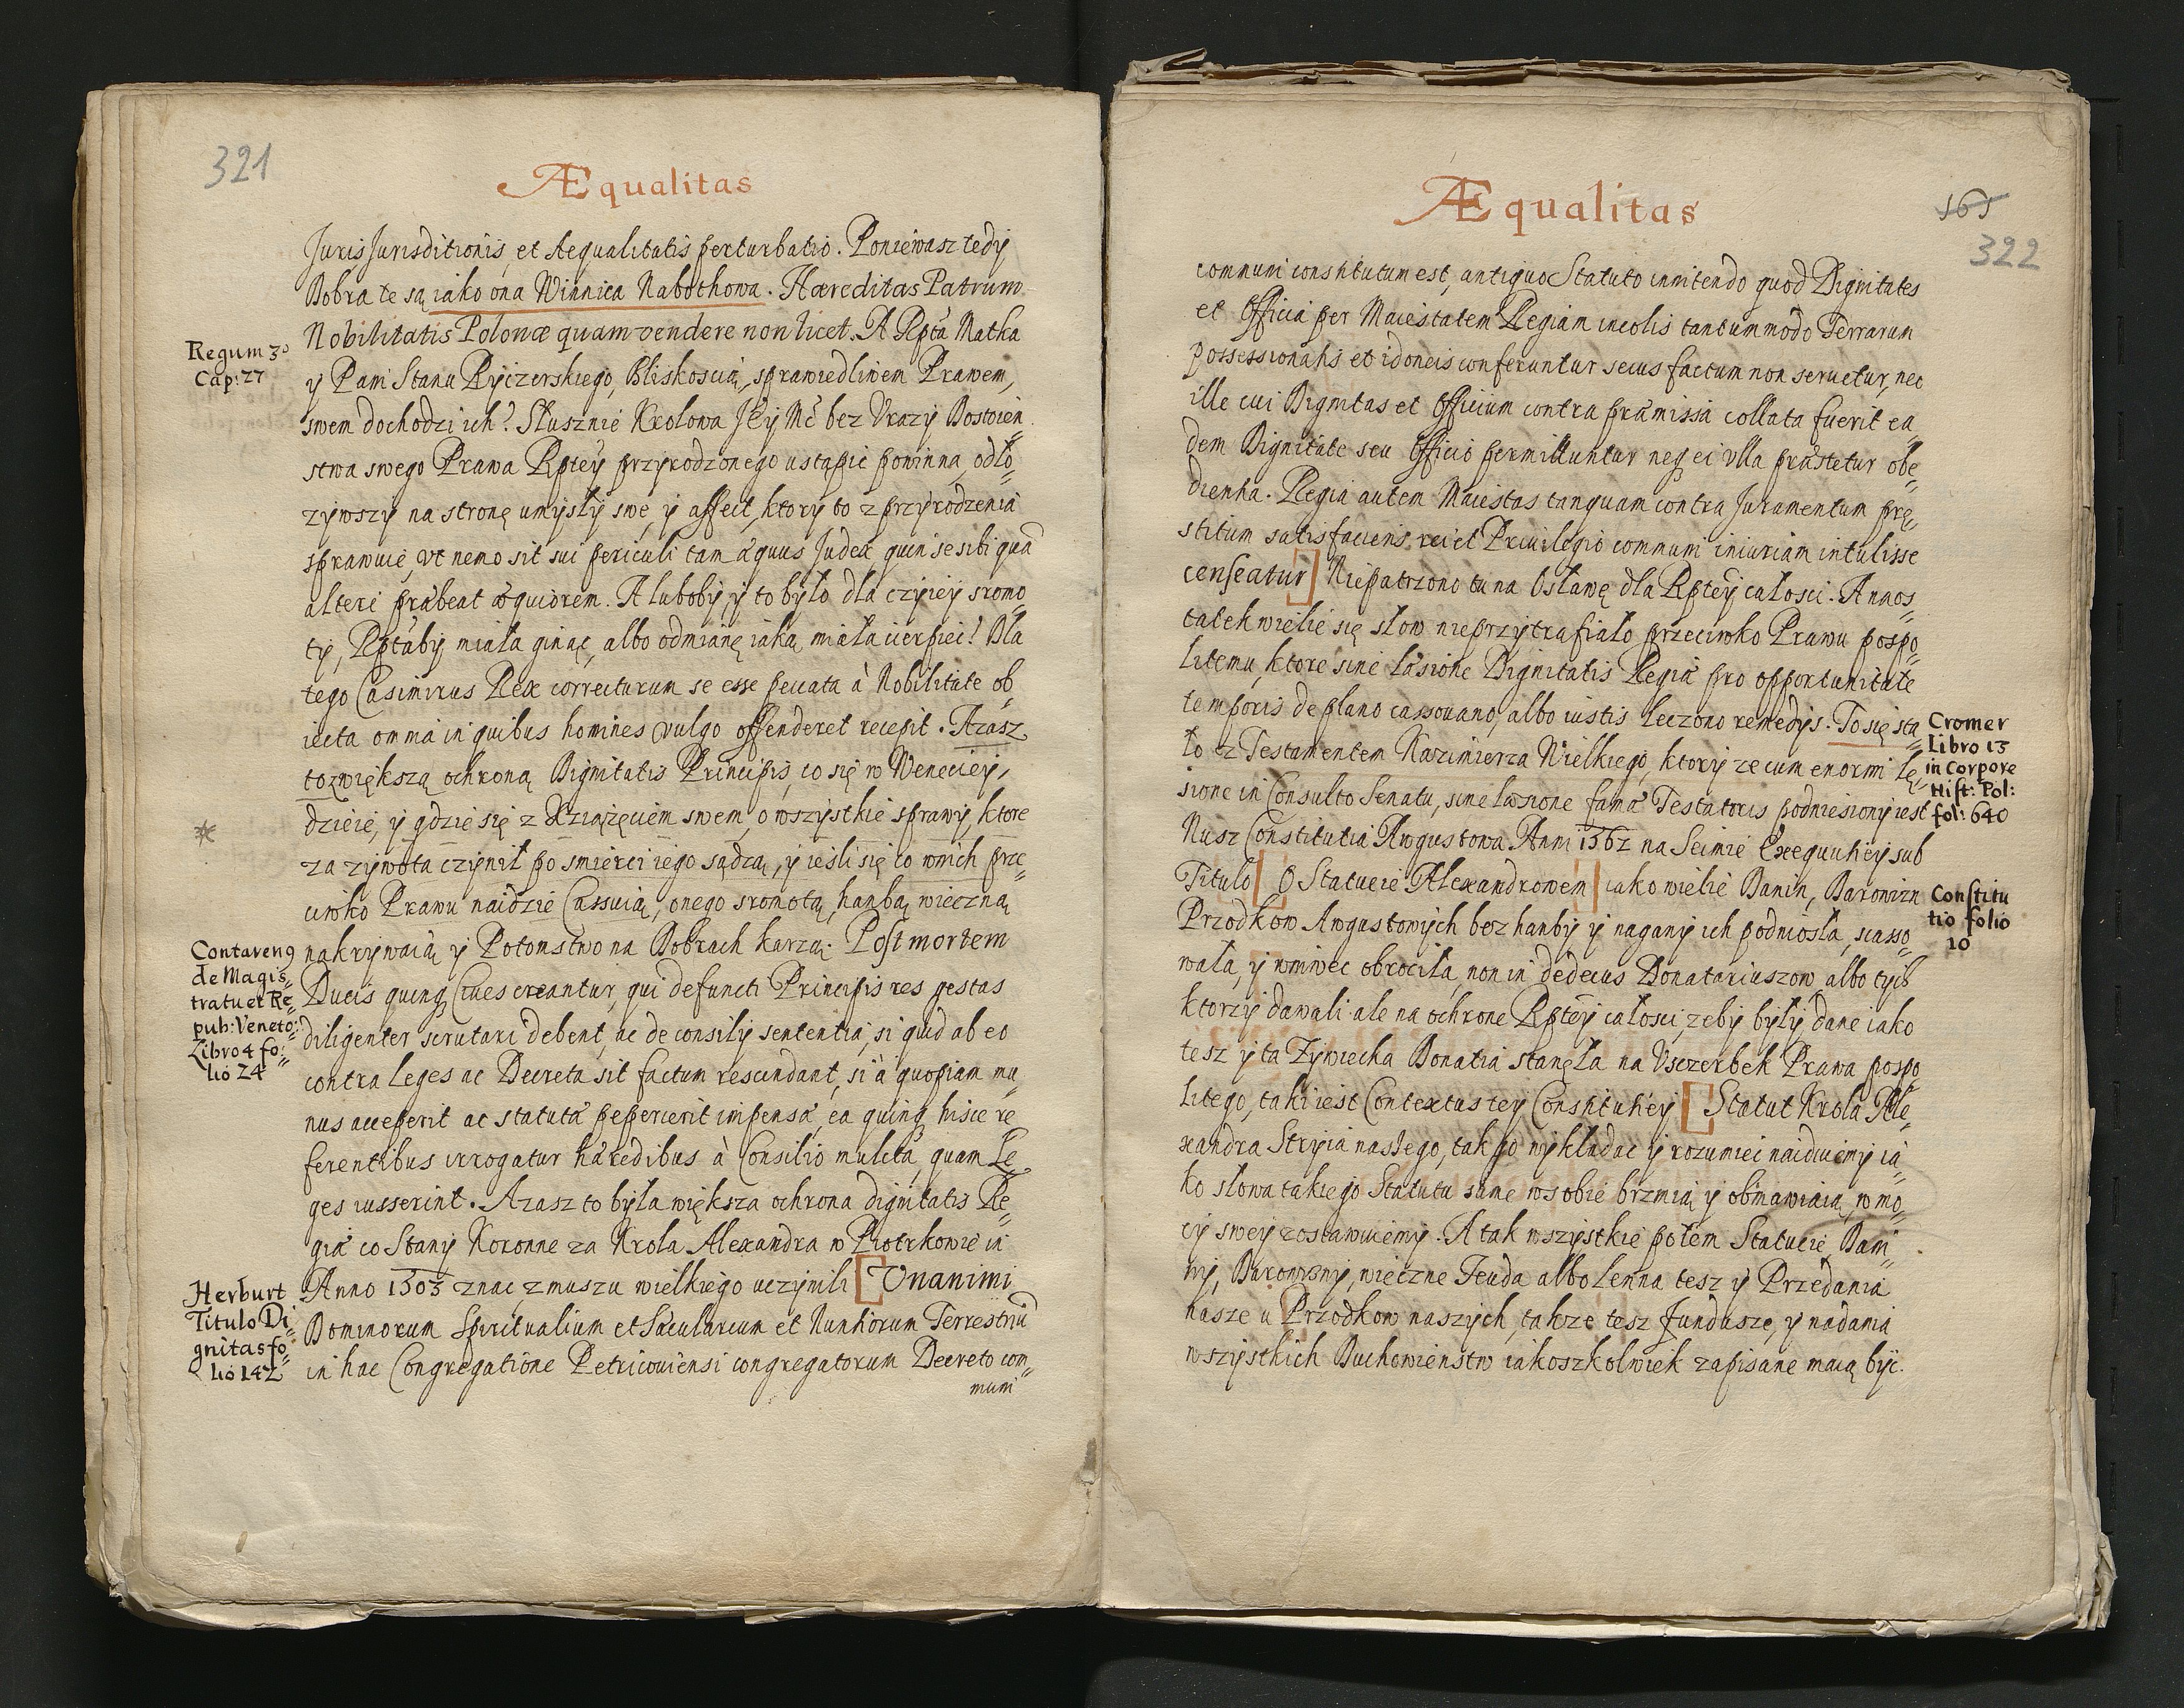 321
Æqualitas
Juris Jurisditionis, et Aequalitatis perturbatio. Poniewasz tedÿ
Dobra te są iako ona Winnica Nabothowa. Hæreditas Patrum
Nobilitatis Polonæ quam vendere non licet. A Rptā Matka
Regum 3º
Cap: 27
ÿ Pani Stanu Rÿcizerskiego, Bliskoscią, sprawiedliwem Prawem,
swem dochodzi ich? Słusznie Krolowa JEÿ Mć bez Vrazÿ Dostoien
stwa swego Prawa Rpteÿ przÿrodzonego ustąpic powinna, odło
zÿwszÿ na stronę umÿsłÿ swe, ÿ affect, ktorÿ to z przÿrodzenia
sprawuie, vt nemo sit sui periculi tam æquus Judex, quin se sibi quā
alteri præbeat æquiorem. A lubobÿ, ÿ to bÿło dla czÿieÿ sromo
tÿ, Rptābÿ miała ginąc, albo odmianę iaką miała cierpiec! Dla
tego Casimirus Rex correcturum se esse peccata à Nobilitate ob
iecta omnia in quibus homines vulgo offenderet recepit. Azasz
to z większą ochroną Dignitatis Principis, co się w Wenecieÿ,
dzieie, ÿ gdzie się z Xziążęciem swem, o wszÿstkie sprawÿ, ktore
za zÿwota czÿnił po smierci iego sądzą, ÿ iesli się co w nich prze
ciwko Prawu naidzie Cassuią, onego sromotą, hanbą wieczną
nakrÿwaią ÿ Potomstwo na Dobrach karzą. Post mortem
Contareng
de Magis
tratu et Re
pub: Veneto:
Libro 4 fo
lio 24
Ducis quinq Ciues creantur, qui defuncti Principis res gestas
diligenter scrutari debent, ac de consilÿ sententia, si quid ab eo
contra leges ac Decreta sit factum rescindant, si à quopiam mu
nus acceperit ac statuta pepercerit impensa, ea quinq hisce re
ferentibus irrogatur hæredibus à Consilio mulcta, quam Le
ges iusserint. Azasz to bÿla większa ochrona dignitatis Re
giæ co Stanÿ Koronne za Krola Alexandra w Piotrkowie in
Anno 1503 znac z muszu wielkiego uczÿnili [Unanimi
Herburt
Titulo Di
gnitas fo
lio 142
Dominorum Spiritualium et Sæcularium et Nuntiorum Terrestriū
in hac Congregatione Petricouiensi congregatorum Decreto com
muni
Æqualitas
165
322
communi constitutum est, antiquo Statuto innitendo quod Dignitates
et Officia per Maiestatem Regiam incolis tantummodo Terrarum
possessionatis et idoneis conferuntur secus factum non seruetur, nec
ille cui Dignitas et Officium contra præmissa collata fuerit ea
dem Dignitate seu Officio permittuntur neq ei vlla præstetur obe
dientia. Regia autem Maiestas tanquam contra Juramentum præ
stitum satisfaciens rei et Priuilegio communi iniuriam intulisse
censeatur] Niepatrzono tu na Osławę dla Rpteÿ całosci. A na os
tatek wielie się słow nieprzÿtrafiało przeciwko Prawu pospo
litemu, ktore sine læsione Dignitatis Regiæ pro opportunitate
temporis de plano cassowano, albo iustis leczono remedÿs. To się sta
Cromer
Libro 13
in Corpore
Hist: Pol:
fol: 640
ło z Testamentem Kazimierza Wielkiego, ktorÿ ze cum enormi Læ
sione in Consulto Senatu, sine læsione famæ Testatoris podniesionÿ iest
Nusz Constitutia Awgustowa Anni 1562 na Seimie Exequutieÿ sub
Titulo [O Statucie Alexandrowem] iako wielie Danin, Darowizn
Constitu
tio folio
10
Przodkow Awgustowÿch bez hanbÿ ÿ naganÿ ich podniosła, scasso
wała, ÿ wniwec obrociła, non in dedecus Donatariuszow albo tÿch
ktorzÿ dawali ale na ochrone Rpteÿ całosci, zebÿ bÿłÿ dane iako
tesz ÿ ta Zÿwiecka Donatia stanęła na Vsczerbek Prawa pospo
litego, taki iest Contextus teÿ Constitutieÿ [Statut Krola Ale
xandra Strÿia naszego, tak go wÿkładac ÿ rozumiec naiduiemÿ ia
ko słowa takiego Statutu same w sobie brzmią ÿ obmawiaią, w mo
cÿ sweÿ zostawuiemÿ. A tak wszÿstkie potem Statucie, Dani
nÿ, Darowiznÿ, wieczne Feuda albo Lenna tesz ÿ Przedania
nasze u Przodkow naszÿch, takze tesz fundusze, ÿ nadania
wszÿstkich Duchowienstw iakoszkolwiek zapisane maią bÿc.